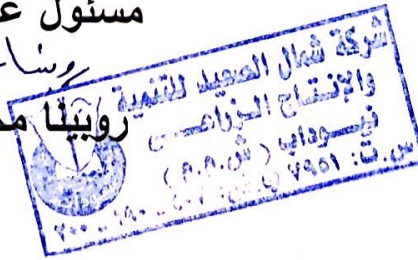 مسئول ع
روبينا مح
شركة شمال الصعيد للتنمية
والإنتاج الزراعى
نيوداب (ش.م.م)
س.ت: ٧٩٥١